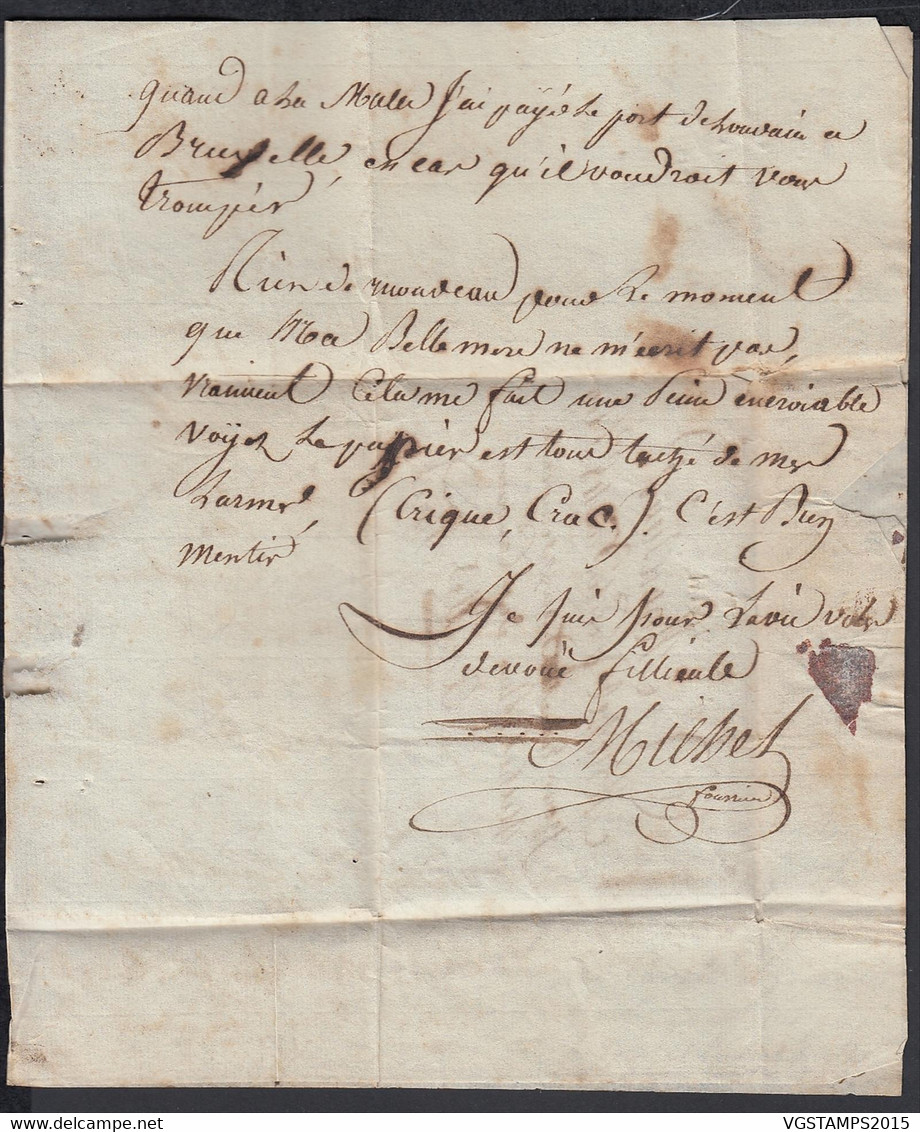 quand a La Malle J'ai payé Le port de Louvain a
Bruxelle, en cas qu'il voudroit vous
tromper
Rien de nouveau pour Le moment
que Ma Belle mere ne m'écrit pas,
vraiment Cela me fait une Peine incroiable
voyez Le papier est tout taché de mes
Larmes, (Crique, Crac.). C'est Bien
mentir
Je suis pour La vie votre
devoué fillieule
Michel
fournier
VGSTAMPS2015